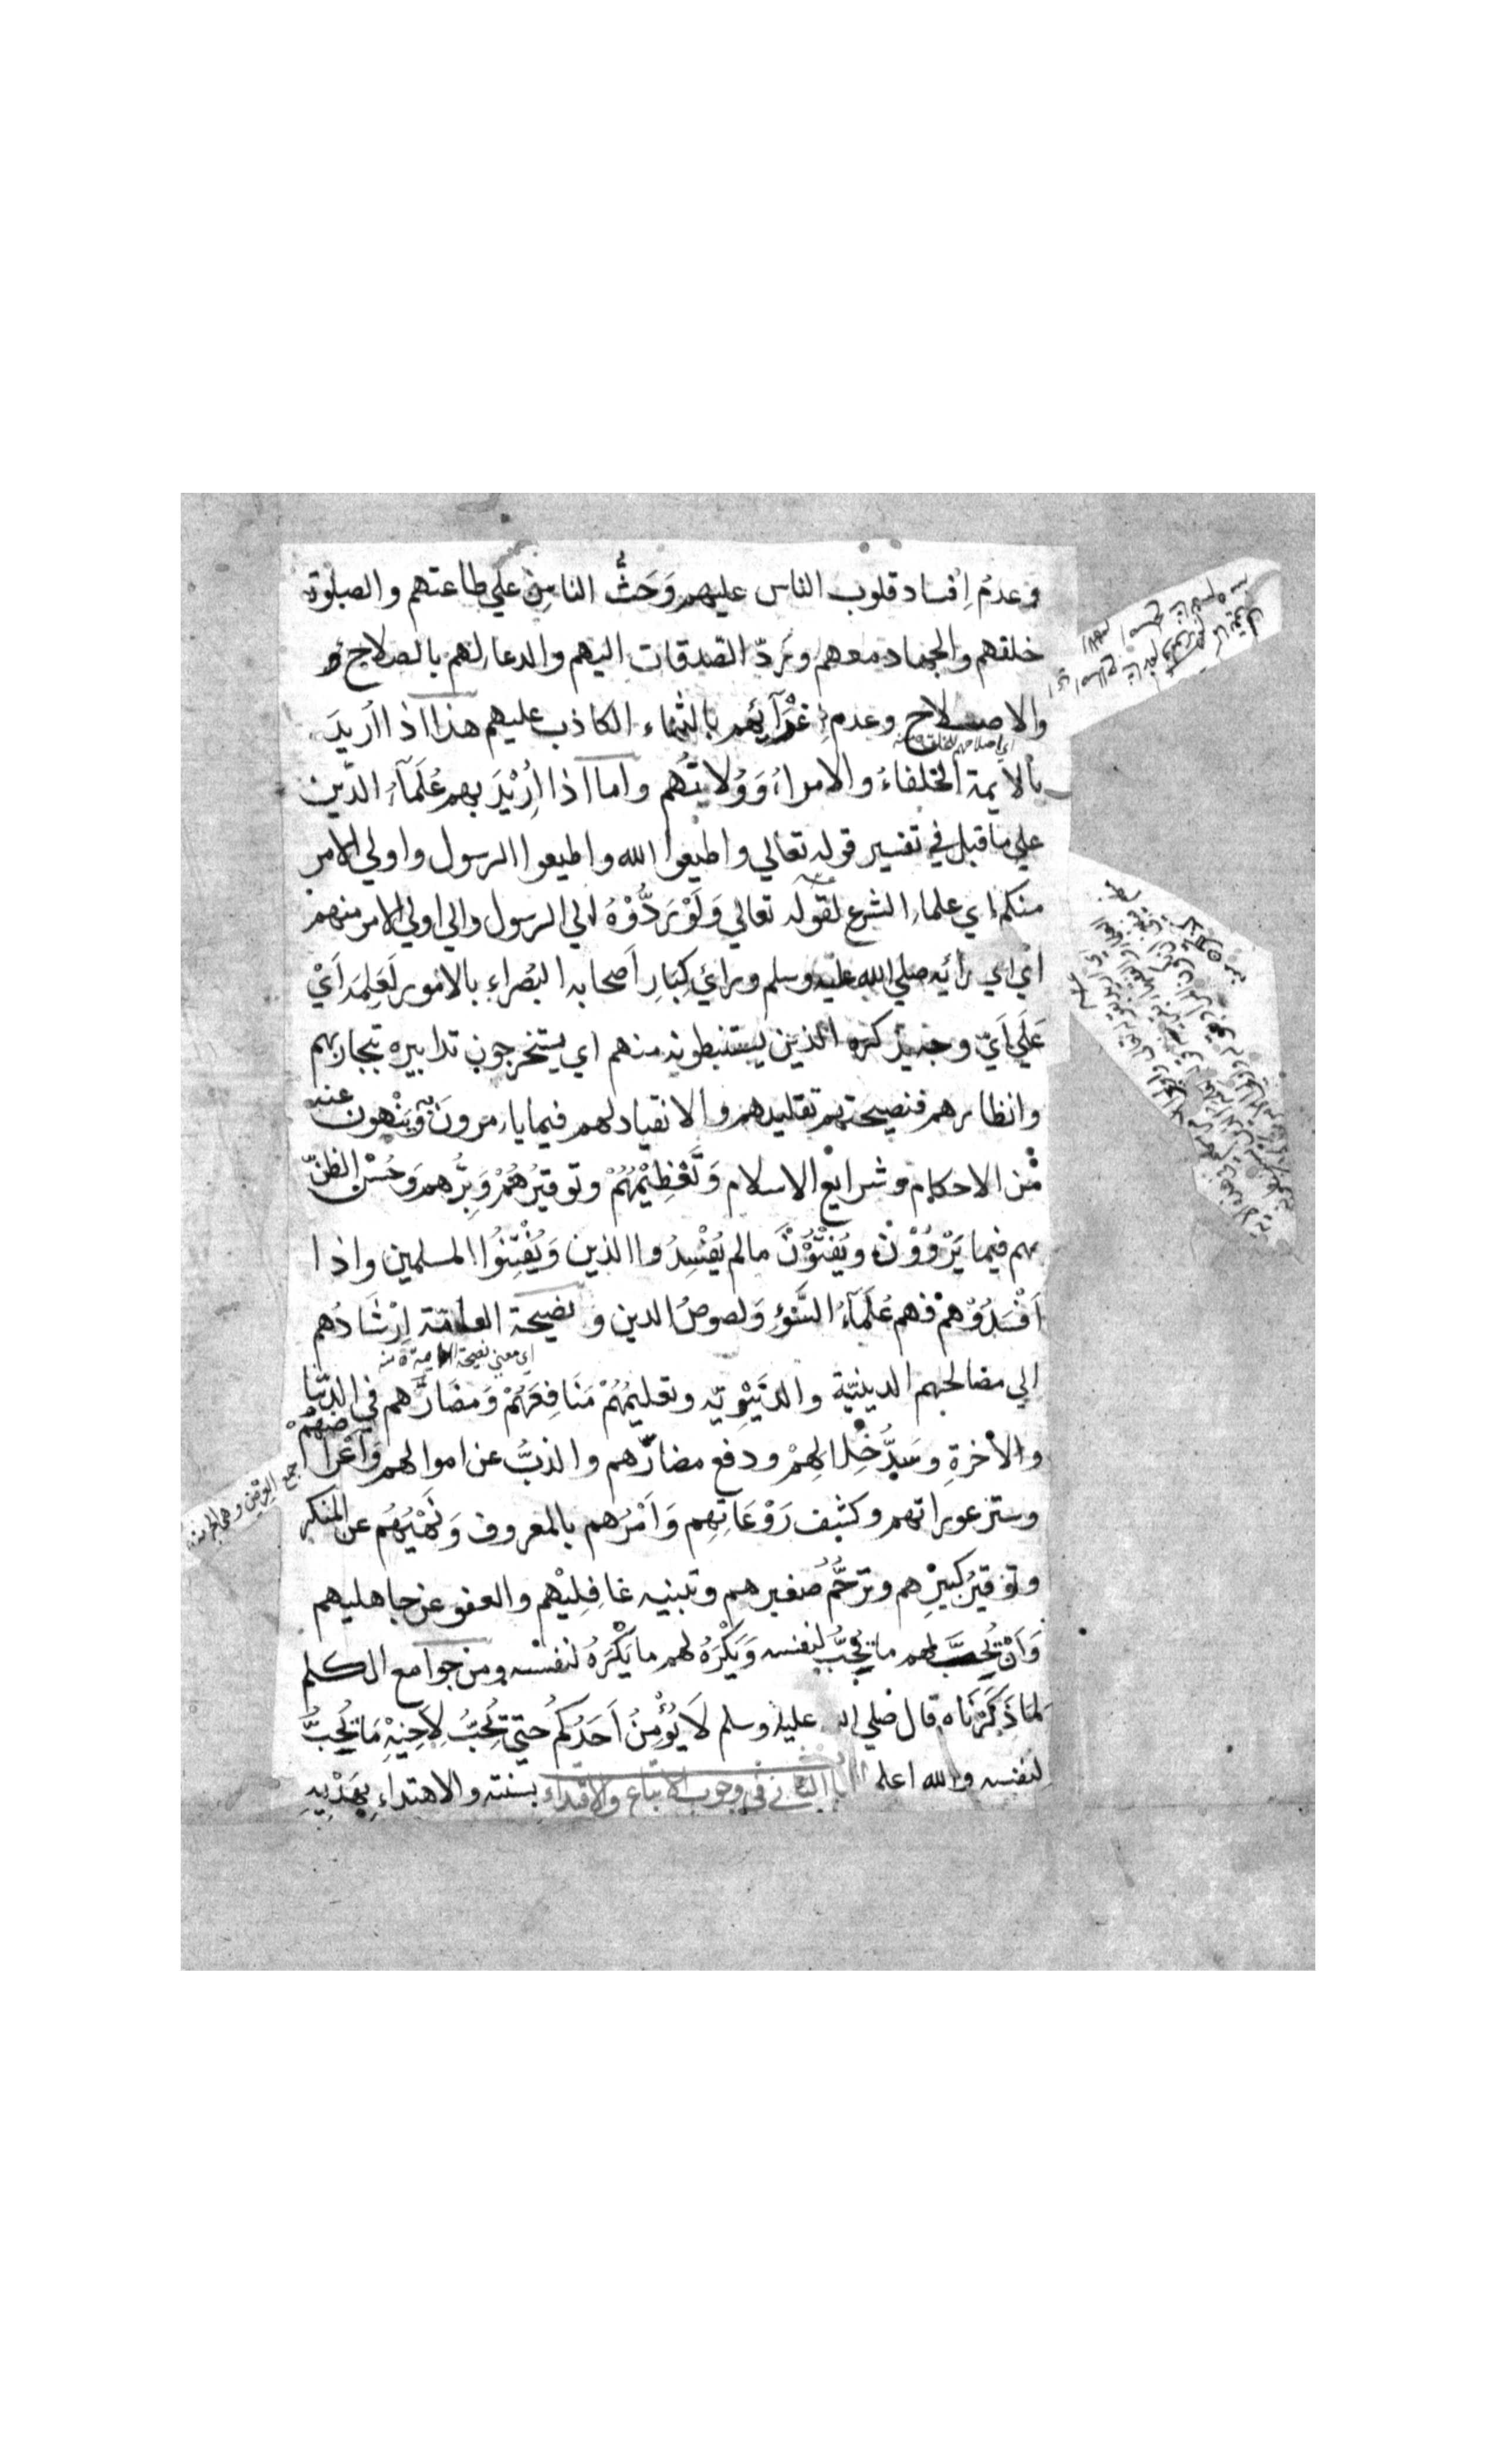 وعدمُ اِفساد قلوب الناس عليهم وَحَثُّ الناس علي طاعتهم والصلوة
خلفهم والجهاد معهم و برَدّ الصدقات اليهم والدعا لهم بالصلاح
والاصلاح وعدم اِغْرَآئِهم بالثناء الكاذب عليهم هذا اذا اُريدَ
اي اصلاحهم للخلق منه
بالايمة الخلفاءُ والامراءُ وَوُلاتُهُم واما اذا اُرِيْدَ بهم عُلَمَآءُ الدّين
علي ما قيل في تفسير قوله تعالي واطيعوا الله واطيعوا الرسول واولي الامر
منكم اي علماء الشرع لقوله تعالي وَلَوْ رَدُّوْهُ الي الرسول والي اولي الامر منهم
اي الي رأيه صلي الله عليه وسلم ورائ كِبَارِ اَصحابه البُصَراءِ بالامور لَعَلِمَهُ اَيْ
عَلَي اَيّ وجه يذكره الذين يستنبطونه منهم اي يستخرجون تدابيره بتجاربهم
وانظارهم فنصيحتهم تقليدهم والانقياد لهم فيما يامرونَ به وَيَنْهون عنه
من الاحكام وشرايع الاسلام وَتَعْظِيْمُهُمْ وتوقيرُهُمْ وَبِرُّهم وَحُسْن الظنّ
بهم فيما يَرْوُوْنَ ويُفْتُوْنَ مالم يُفْسِدُوا الدين وَيُفْتِنُوا المسلمين واذا
اَفْسَدُوْهم فهم عُلَمَآءُ السَّوْءِ وَلصوصُ الدين و نصيحة العامّة اِرْشَادُهم
اي معني نصيحة العامة منه
الي مصالحهم الدينيّة والدُّنْيَوِيّه وتعليمُهُمْ مَنَافِعَهُمْ وَمضَارَّهم في الدنيا
والاخرةِ وسَدُّ خِلالِهِمْ ودفع مضارّهم والذبُّ عن اموالهم وَاَعْراضهم
جمع العِرض وهي
وستر عوراتهم وكشف رَوْعَاتِهِم وَاَمْرُهم بالمعروف وَنَهْيُهُم عن المنكر
وتوقيرُ كبيرِهم وترحُّمُ صغيرهم وتنبيه غافِلِيْهم والعفو عن جاهليهم
وَاَنْ يُحِبَّ لهم ما يُحِبُّ لنفسه وَيَكْرَهُ لهم ما يَكْرَهُ لنفسه ومن جوامع الكلم
لما ذَكَرْنَاه قال صلي الله عليه وسلم لَا يُؤْمِنُ اَحَدُكُم حتي يُحِبَّ لِاَخِيْهِ مَا يُحِبُّ
لنفسه والله اعلم الباب الثاني في وجوب الاتباع والاقتداء بسنته والاهتداءِ بِهَدْيِهِ